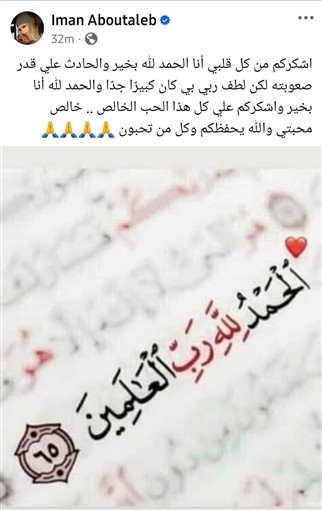 Iman Aboutaleb
32m ·
اشكركم من كل قلبي أنا الحمد لله بخير والحادث علي قدر
صعوبته لكن لطف ربي بي كان كبيرًا جدًا والحمد لله أنا
بخير واشكركم علي كل هذا الحب الخالص .. خالص
محبتي والله يحفظكم وكل من تحبون 🙏🙏🙏🙏
ٱلْحَمْدُ لِلَّهِ رَبِّ ٱلْعَالَمِينَ
٦٥
هُوَ